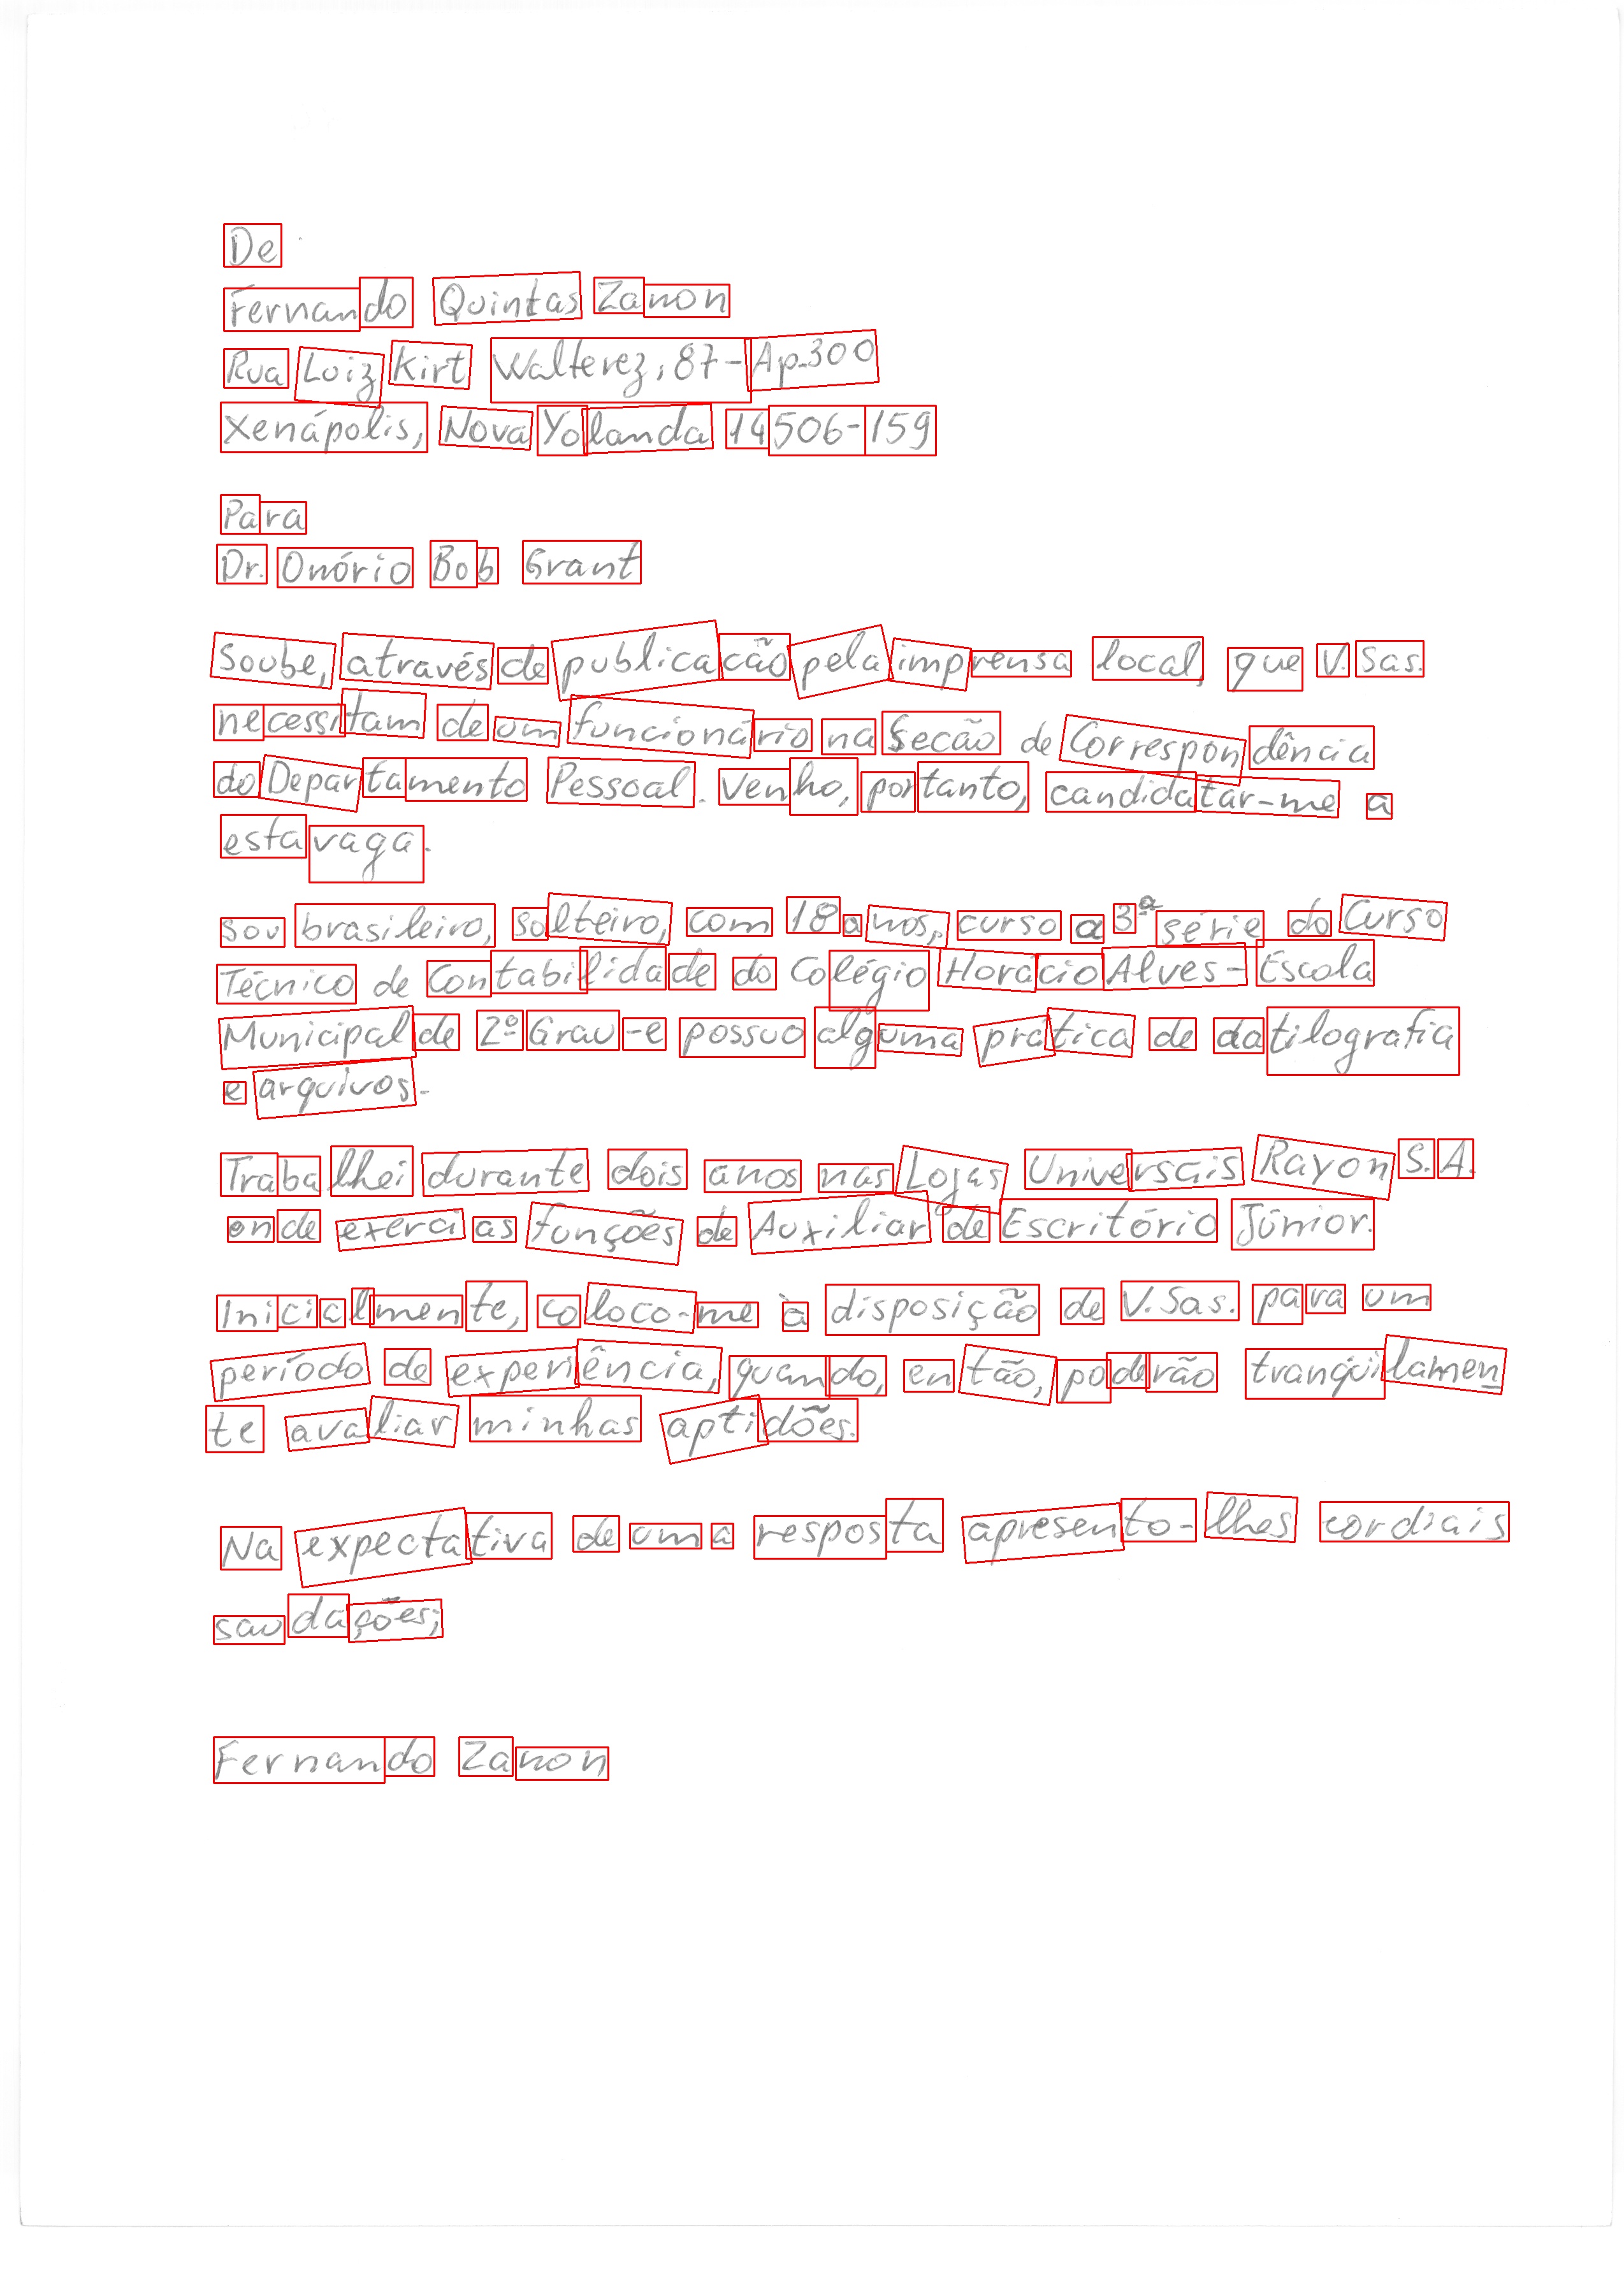 De
Fernando Quintas Zanon
Rua Luiz Kirt Walterez, 87-Ap.300
Xenápolis, Nova Yolanda 14506-159
Para
Dr. Onório Bob Grant
Soube, através de publicacão pela imprensa local, que V. Sas.
necessitam de um funcionário na Secão de Correspondência
do Departamento Pessoal. Venho, portanto, candidatar-me a
esta vaga.
Sou brasileiro, solteiro, com 18 anos, curso a 3ª série do Curso
Técnico de Contabilidade do Colégio Horácio Alves-Escola
Municipal de 2º Grau-e possuo alguma prática de datilografia
e arquivos.
Trabalhei durante dois anos nas Lojas Universais Rayon S.A.
onde exerci as funções de Auxiliar de Escritório Júnior.
Inicialmente, coloco-me à disposição de V.Sas. para um
período de experiência, quando, então, poderão tranqüilamen
te avaliar minhas aptidões.
Na expectativa de uma resposta apresento-lhes cordiais
saudações;
Fernando Zanon